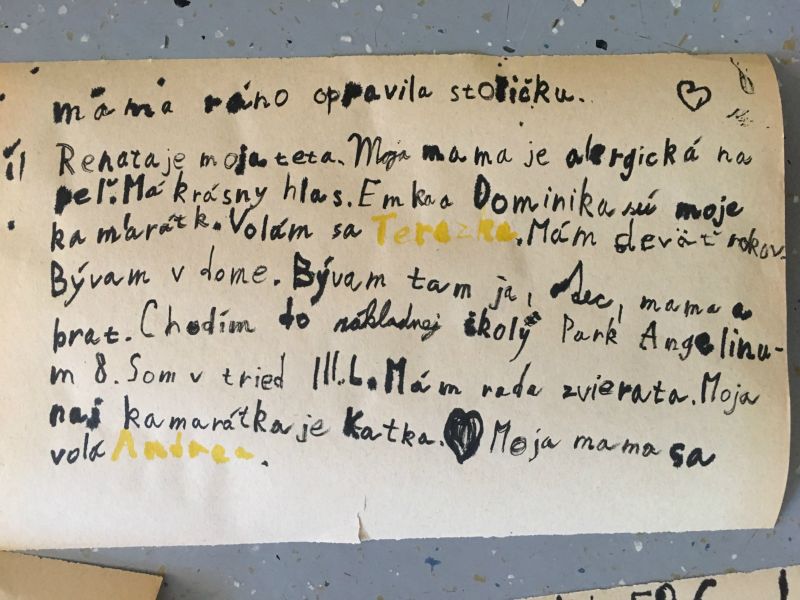 mama ráno opravila stoličku.
Renata je moja teta. Moja mama je alergická na
peľ. Má krásny hlas. Emka a Dominika sú moje
kamarátk. Volám sa Terezka. Mám deväť rokov.
Bývam v dome. Bývam tam ja, otec, mama a
brat. Chodím do nákladnej školy Park Angelinu-
m 8. Som v tried III. L. Mám rada zvierata. Moja
naj kamarátka je Katka. Moja mama sa
volá Andrea.